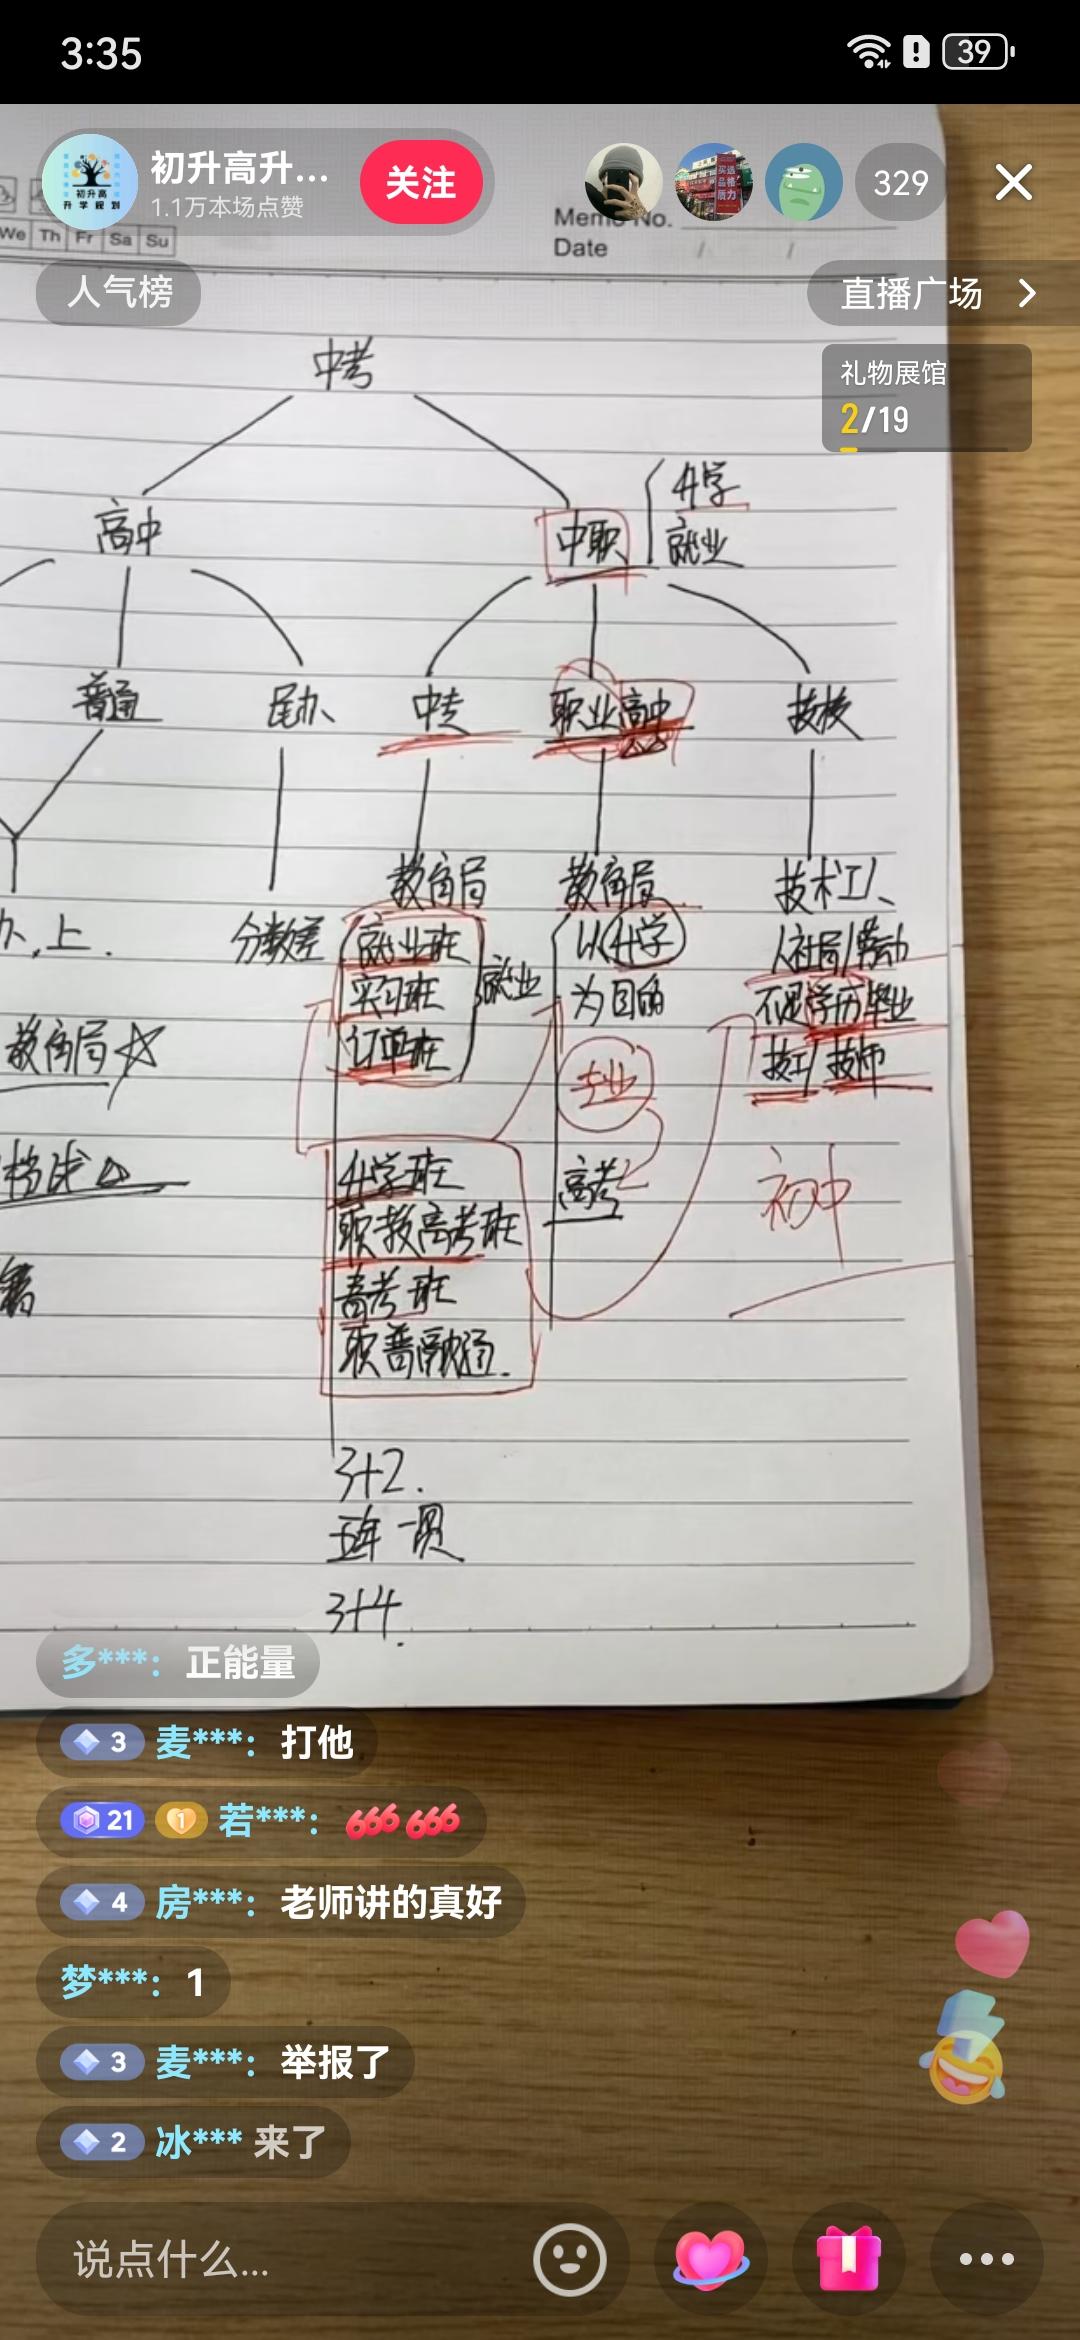 3:35
39
初升高升...
1.1万本场点赞
关注
329
初升高
升学规划
We Th Fr Sa Su
Memo No.
Date / /
人气榜
直播广场
礼物展馆
2/19
中考
高中
中职
升学
就业
普通
民办
中专
职业高中
技校
教育局
教育局
技术工人
办,上.
分数差
就业班
实习班
订单班
就业
以升学
为目的
人社局/劳动
不是学历毕业
技工/技师
教育局☆
专业
高考
初中
升学班
职教高考班
高考班
职普融通.
3+2.
五年一贯
3+4.
多***：正能量
3 麦***：打他
21 1 若***：666 666
4 房***：老师讲的真好
梦***：1
3 麦***：举报了
2 冰*** 来了
说点什么...